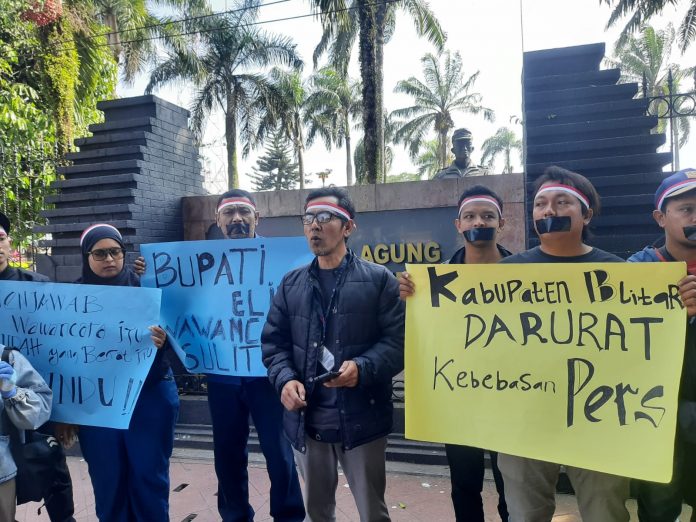 MENJAWAB
Wawancara itu
MUDAH yang Berat itu
RINDU!!
BUPATI
ELI
WAWANC
SULIT
AGUNG
Kabupaten Blitar
DARURAT
Kebebasan Pers